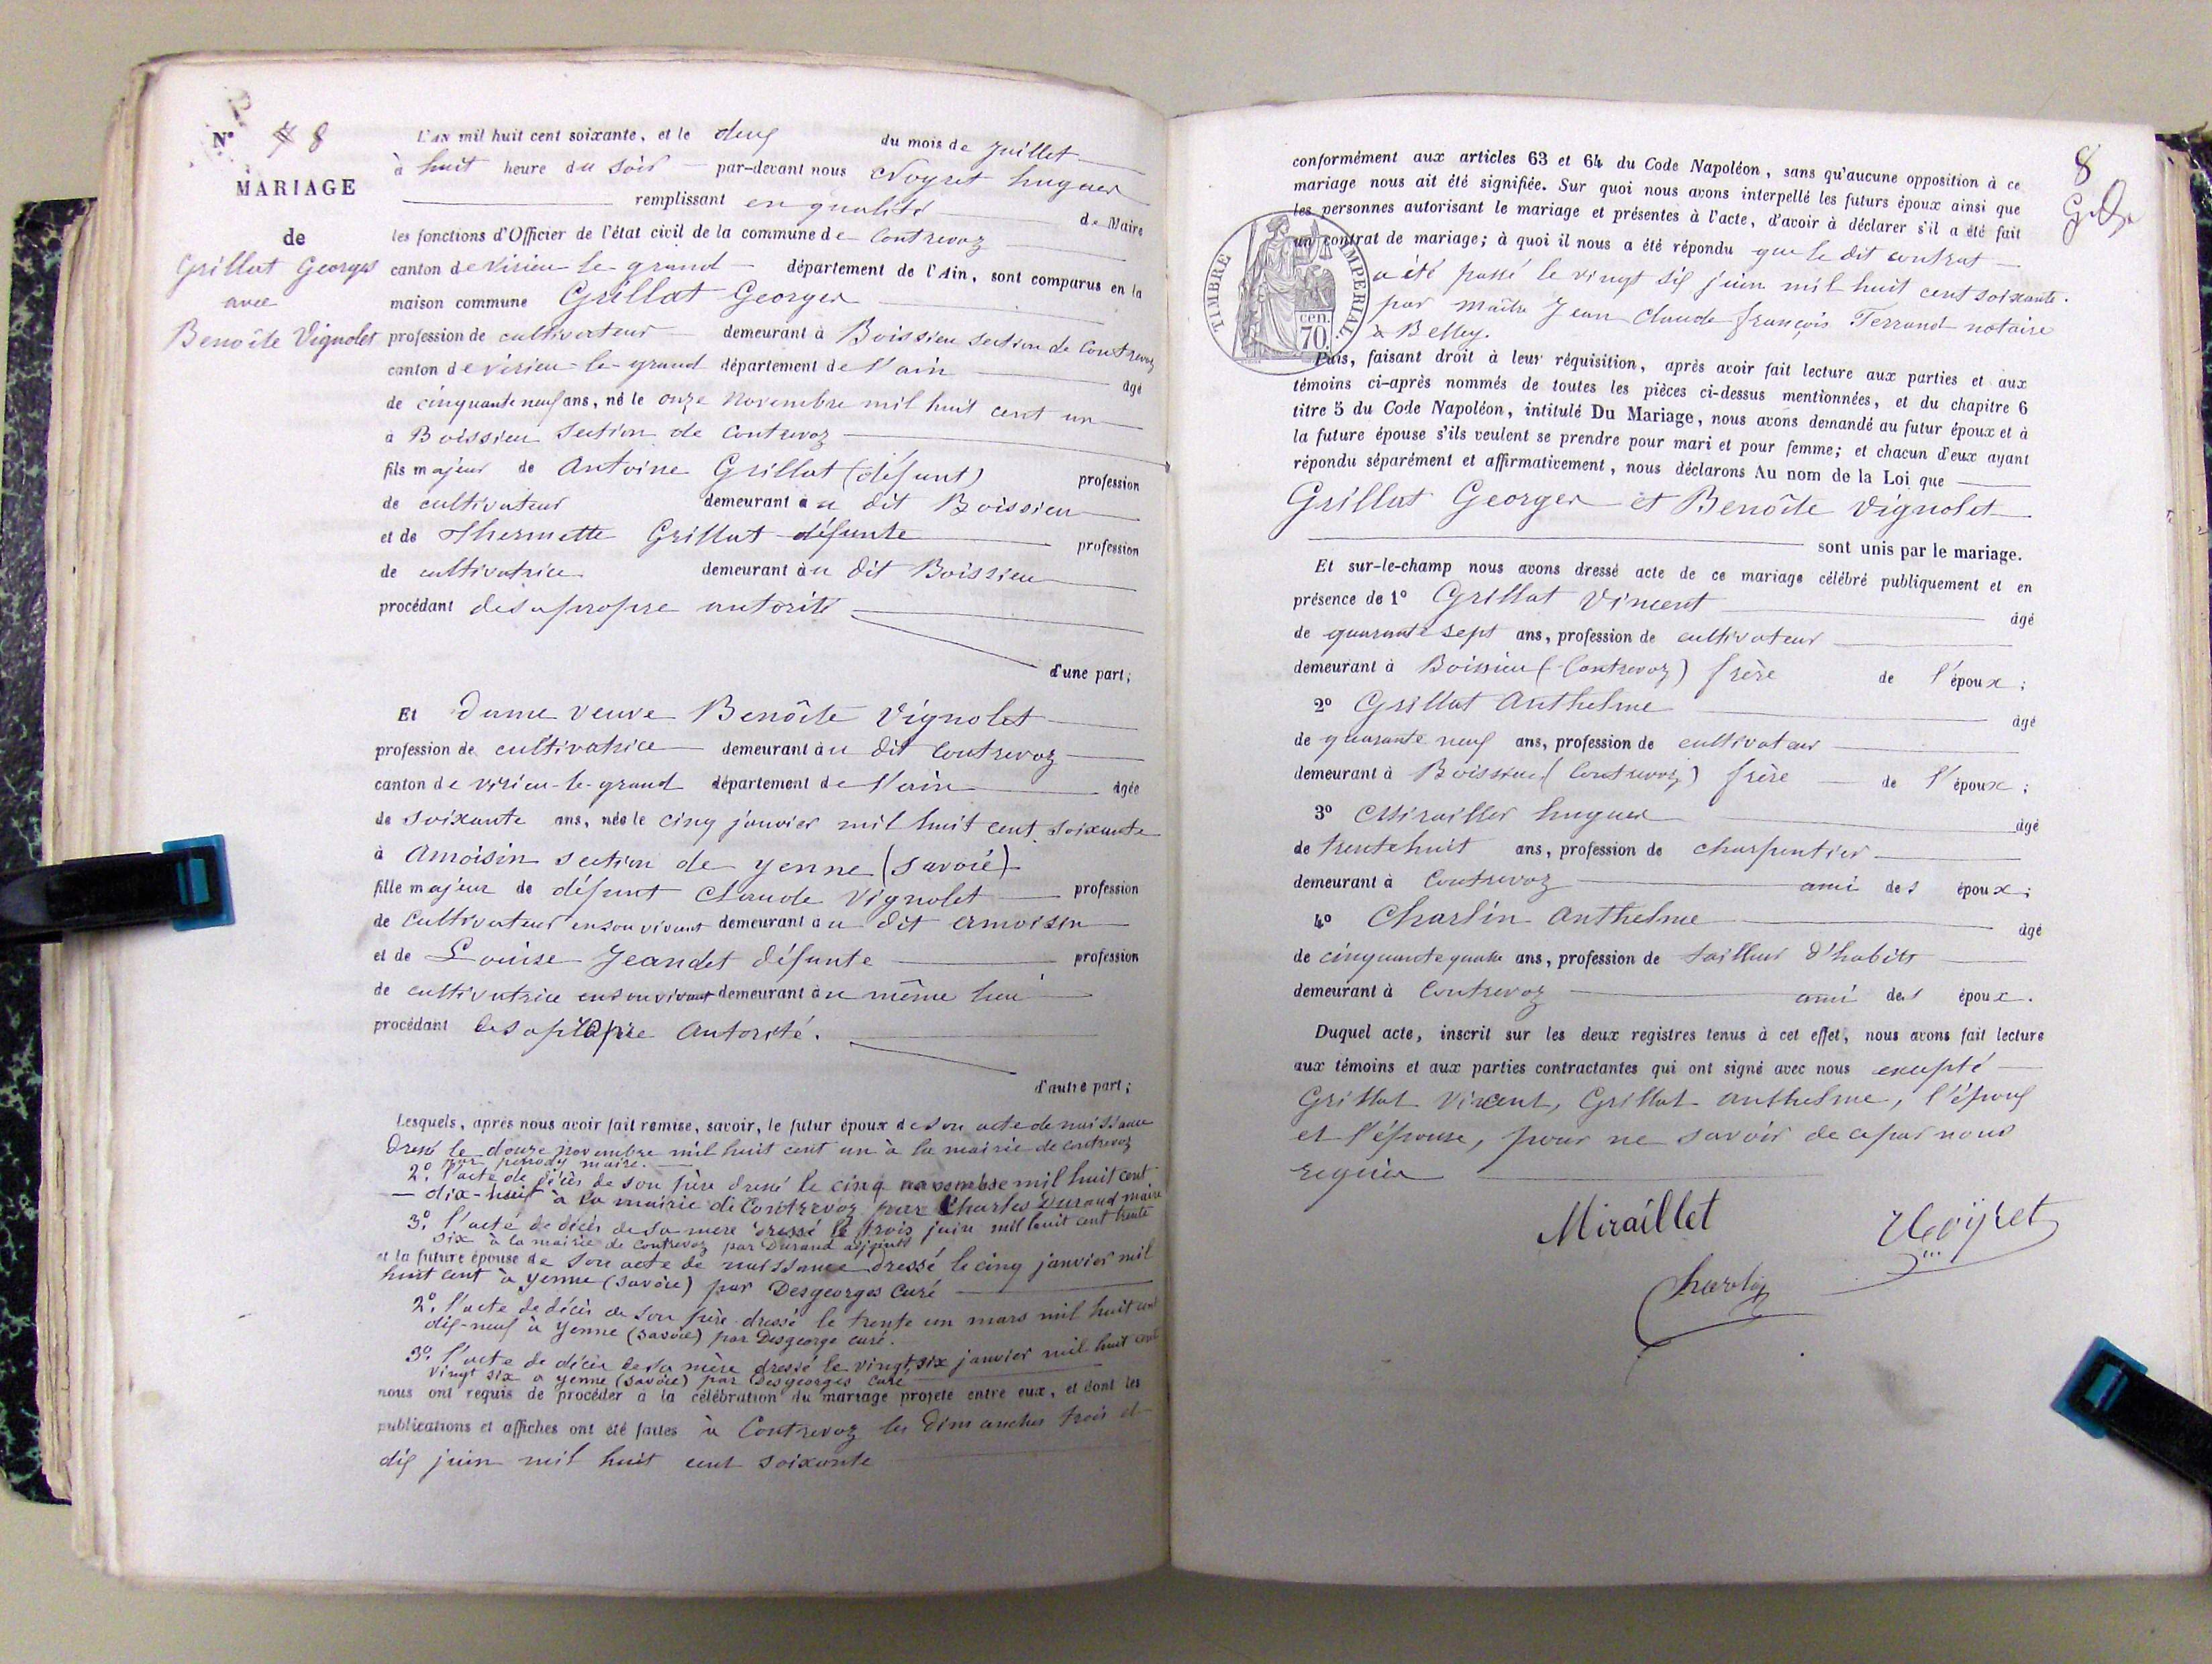 N° 8
MARIAGE
de
Grillat Georges
avec
Benoîte Vignolet
L'an mil huit cent soixante, et le deux du mois de Juillet
à huit heure du soir par-devant nous Noyret hugues
remplissant en qualité de Maire
les fonctions d'Officier de l'état civil de la commune de Contrevoz
canton de virieu le grand département de l'Ain, sont comparus en la
maison commune Grillat Georges
profession de cultivateur demeurant à Boissieu section de Contrevoz
canton de virieu-le-grand département de l'ain âgé
de cinquante neuf ans, né le onze Novembre mil huit cent un
à Boissieu Section de Contrevoz
fils majeur de Antoine Grillat (défunt) profession
de cultivateur demeurant au dit Boissieu
et de Thermette Grillat défunte profession
de cultivatrice demeurant au dit Boissieu
procédant de sa propre autorité
d'une part;
Et Dame veuve Benoîte Vignolet
profession de cultivatrice demeurant au dit Contrevoz
canton de virieu-le-grand département de l'ain âgée
de soixante ans, née le cinq janvier mil huit cent soixante
à Amoisin section de yenne (Savoie)
fille majeur de défunt Claude Vignolet profession
de Cultivateur en son vivant demeurant au dit amoisin
et de Louise Jeandet défunte profession
de cultivatrice en son vivant demeurant au même lieu
procédant de sa propre Autorité.
d'autre part;
Lesquels, après nous avoir fait remise, savoir, le futur époux de son acte de naissance
Dressé le douze novembre mil huit cent un à la mairie de contrevoz
par perrody maire.
2° l'acte de décès de son père dressé le cinq novembre mil huit cent
dix-huit à la mairie de Contrevoz par Charles Durand maire
3° l'acte de décès de sa mere dressé le trois juin mil huit cent trente
six à la mairie de Contrevoz par Durand adjoint
et la future épouse de Son acte de naissance dressé le cinq janvier mil
huit cent à yenne (Savoie) par Desgeorges Curé
2° l'acte de décès de son père dressé le trente un mars mil huit cent
dix-neuf à yenne (savoie) par Desgeorge curé.
3° l'acte de décès de sa mère dressé le vingt six janvier mil huit cent
vingt six a yenne (savoie) par Desgeorges curé
nous ont requis de procéder à la célébration du mariage projeté entre eux, et dont les
publications et affiches ont été faites à Contrevoz les Dimanches trois et
dix juin mil huit cent soixante
8
conformément aux articles 63 et 64 du Code Napoléon, sans qu'aucune opposition à ce
mariage nous ait été signifiée. Sur quoi nous avons interpellé les futurs époux ainsi que
les personnes autorisant le mariage et présentes à l'acte, d'avoir à déclarer s'il a été fait
un contrat de mariage; à quoi il nous a été répondu que le dit contrat
a été passé le vingt six juin mil huit cent soixante.
par Maître Jean Claude françois Terrand notaire
à Belley.
TIMBRE IMPERIAL.
cen.
70.
Puis, faisant droit à leur réquisition, après avoir fait lecture aux parties et aux
témoins ci-après nommés de toutes les pièces ci-dessus mentionnées, et du chapitre 6
titre 5 du Code Napoléon, intitulé Du Mariage, nous avons demandé au futur époux et à
la future épouse s'ils veulent se prendre pour mari et pour femme; et chacun d'eux ayant
répondu séparément et affirmativement, nous déclarons Au nom de la Loi que
Grillat Georges et Benoîte Vignolet
sont unis par le mariage.
Et sur-le-champ nous avons dressé acte de ce mariage célébré publiquement et en
présence de 1° Grillat Vincent âgé
de quarante sept ans, profession de cultivateur
demeurant à Boissieu (Contrevoz) frère de l'époux;
2° Grillat Anthelme âgé
de quarante neuf ans, profession de cultivateur
demeurant à Boissieu (Contrevoz) frère de l'époux;
3° Miraillet hugues âgé
de trente huit ans, profession de charpentier
demeurant à Contrevoz ami des époux;
4° Charlin Anthelme âgé
de cinquante quatre ans, profession de tailleur d'habits
demeurant à Contrevoz ami des époux.
Duquel acte, inscrit sur les deux registres tenus à cet effet, nous avons fait lecture
aux témoins et aux parties contractantes qui ont signé avec nous excepté
Grillat Vincent, Grillat Anthelme, l'époux
et l'épouse, pour ne savoir de ce par nous
requis
Miraillet Noÿret
Charlin